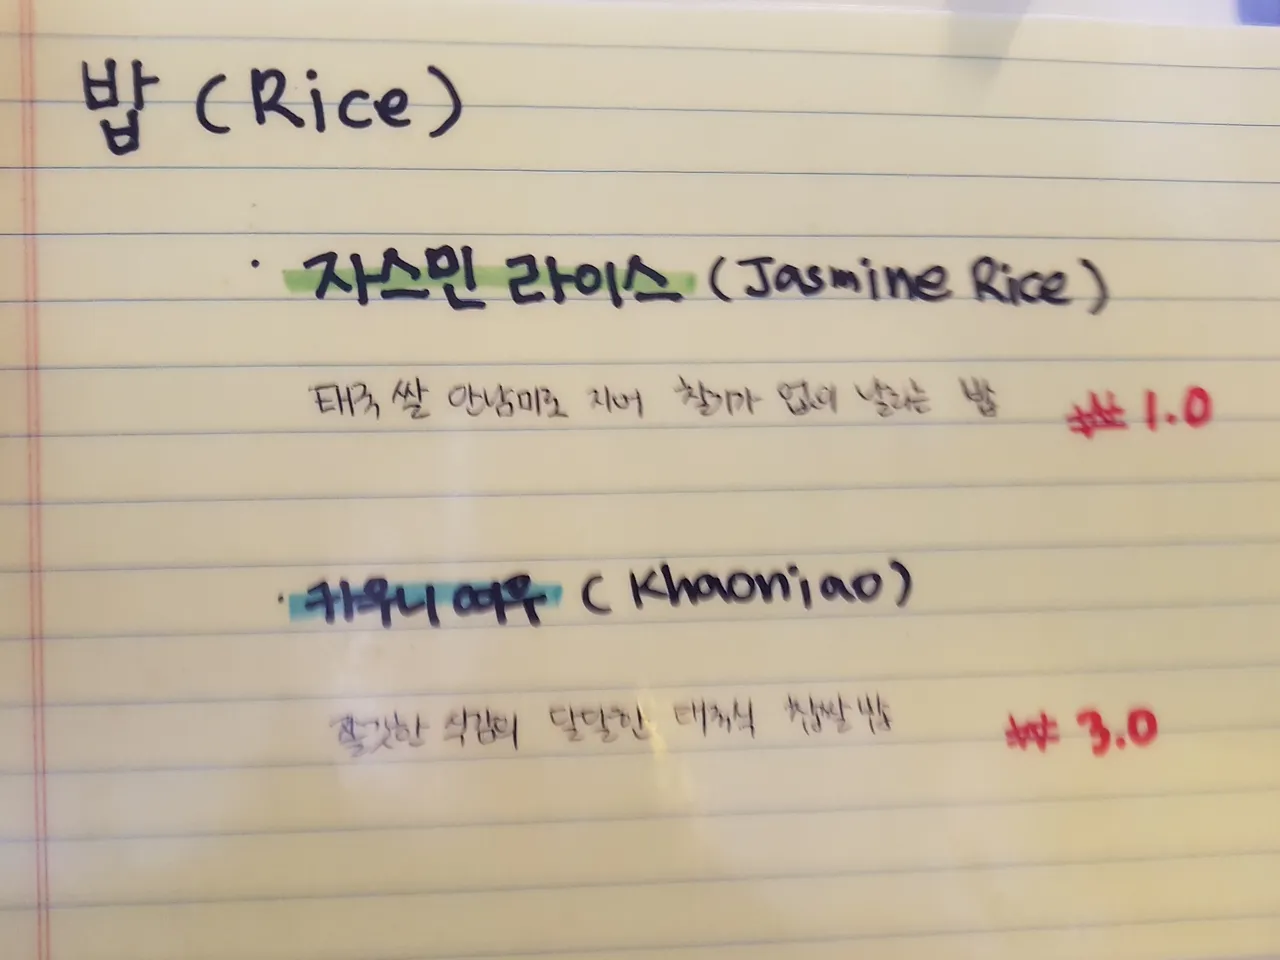 밥 (Rice)
· 자스민 라이스 (Jasmine Rice)
태국 쌀 안남미로 지어 찰기가 없이 날리는 밥 ₩ 1.0
· 카우니 여우 (Khaoniao)
쫄깃한 식감의 달달한 태국식 찹쌀밥 ₩ 3.0